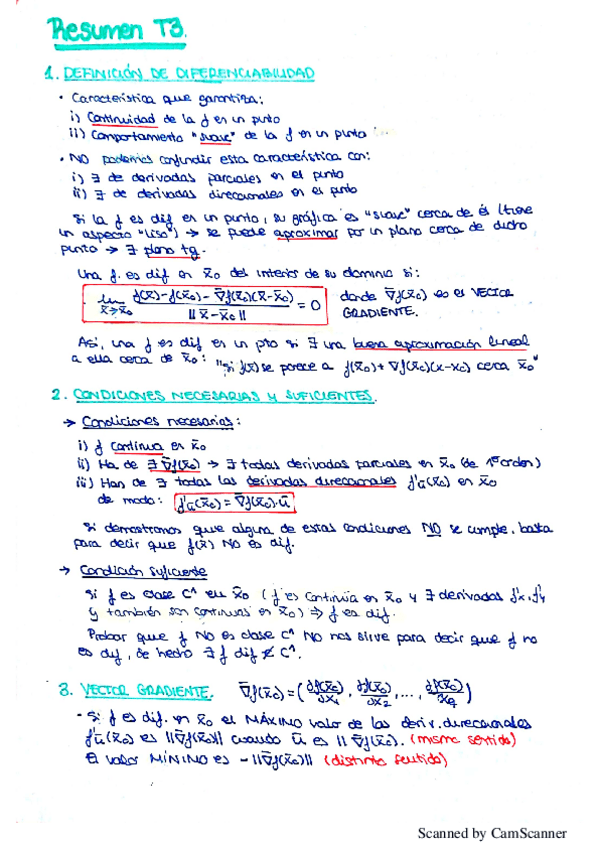 Resumen T3.
1. DEFINICIÓN DE DIFERENCIABILIDAD
• Característica que garantiza:
i) Continuidad de la f en un punto
ii) Comportamiento "suave" de la f en un punto
• NO podemos confundir esta característica con:
i) ∃ de derivadas parciales en el punto
ii) ∃ de derivadas direccionales en el punto
Si la f es dif en un punto, su gráfica es "suave" cerca de él (tiene
un aspecto "liso") → se puede aproximar por un plano cerca de dicho
punto → ∃ plano tg.
Una f. es dif en x̄₀ del interior de su dominio si:
lim x̄→x̄₀ f(x̄)-f(x̄₀)-∇̄f(x̄₀)(x̄-x̄₀) / ||x̄-x̄₀|| = 0 donde ∇̄f(x̄₀) es el VECTOR
GRADIENTE.
Así, una f es dif en un pto si ∃ una buena aproximación lineal
a ella cerca de x̄₀: "si f(x) se parece a f(x̄₀)+∇f(x̄₀)(x-x₀) cerca x̄₀"
2. CONDICIONES NECESARIAS Y SUFICIENTES.
→ Condiciones necesarias:
i) f continua en x̄₀
ii) Ha de ∃ ∇̄f(x̄₀) → ∃ todas derivadas parciales en x̄₀ (de 1er orden)
iii) Han de ∃ todas las derivadas direccionales f'ū(x̄₀) en x̄₀
de modo: f'ū(x̄₀) = ∇̄f(x̄₀)·ū
Si demostramos que alguna de estas condiciones NO se cumple, basta
para decir que f(x̄) NO es dif.
→ Condición suficiente
Si f es clase C¹ en x̄₀ (f es continua en x̄₀ y ∃ derivadas f'x, f'y
y también son continuas en x̄₀) ⇒ f es dif.
Probar que f NO es clase C¹ NO nos sirve para decir que f no
es dif, de hecho ∃ f dif ∉ C¹.
3. VECTOR GRADIENTE. ∇̄f(x̄₀) = (∂f(x̄₀)/∂x₁, ∂f(x̄₀)/∂x₂, ..., ∂f(x̄₀)/∂xₙ)
• Si f es dif. en x̄₀ el MÁXIMO valor de las deriv. direccionales
f'ū(x̄₀) es ||∇̄f(x̄₀)|| cuando ū es || ∇̄f(x̄₀). (mismo sentido)
El valor MÍNIMO es -||∇̄f(x̄₀)|| (distinto sentido)
Scanned by CamScanner